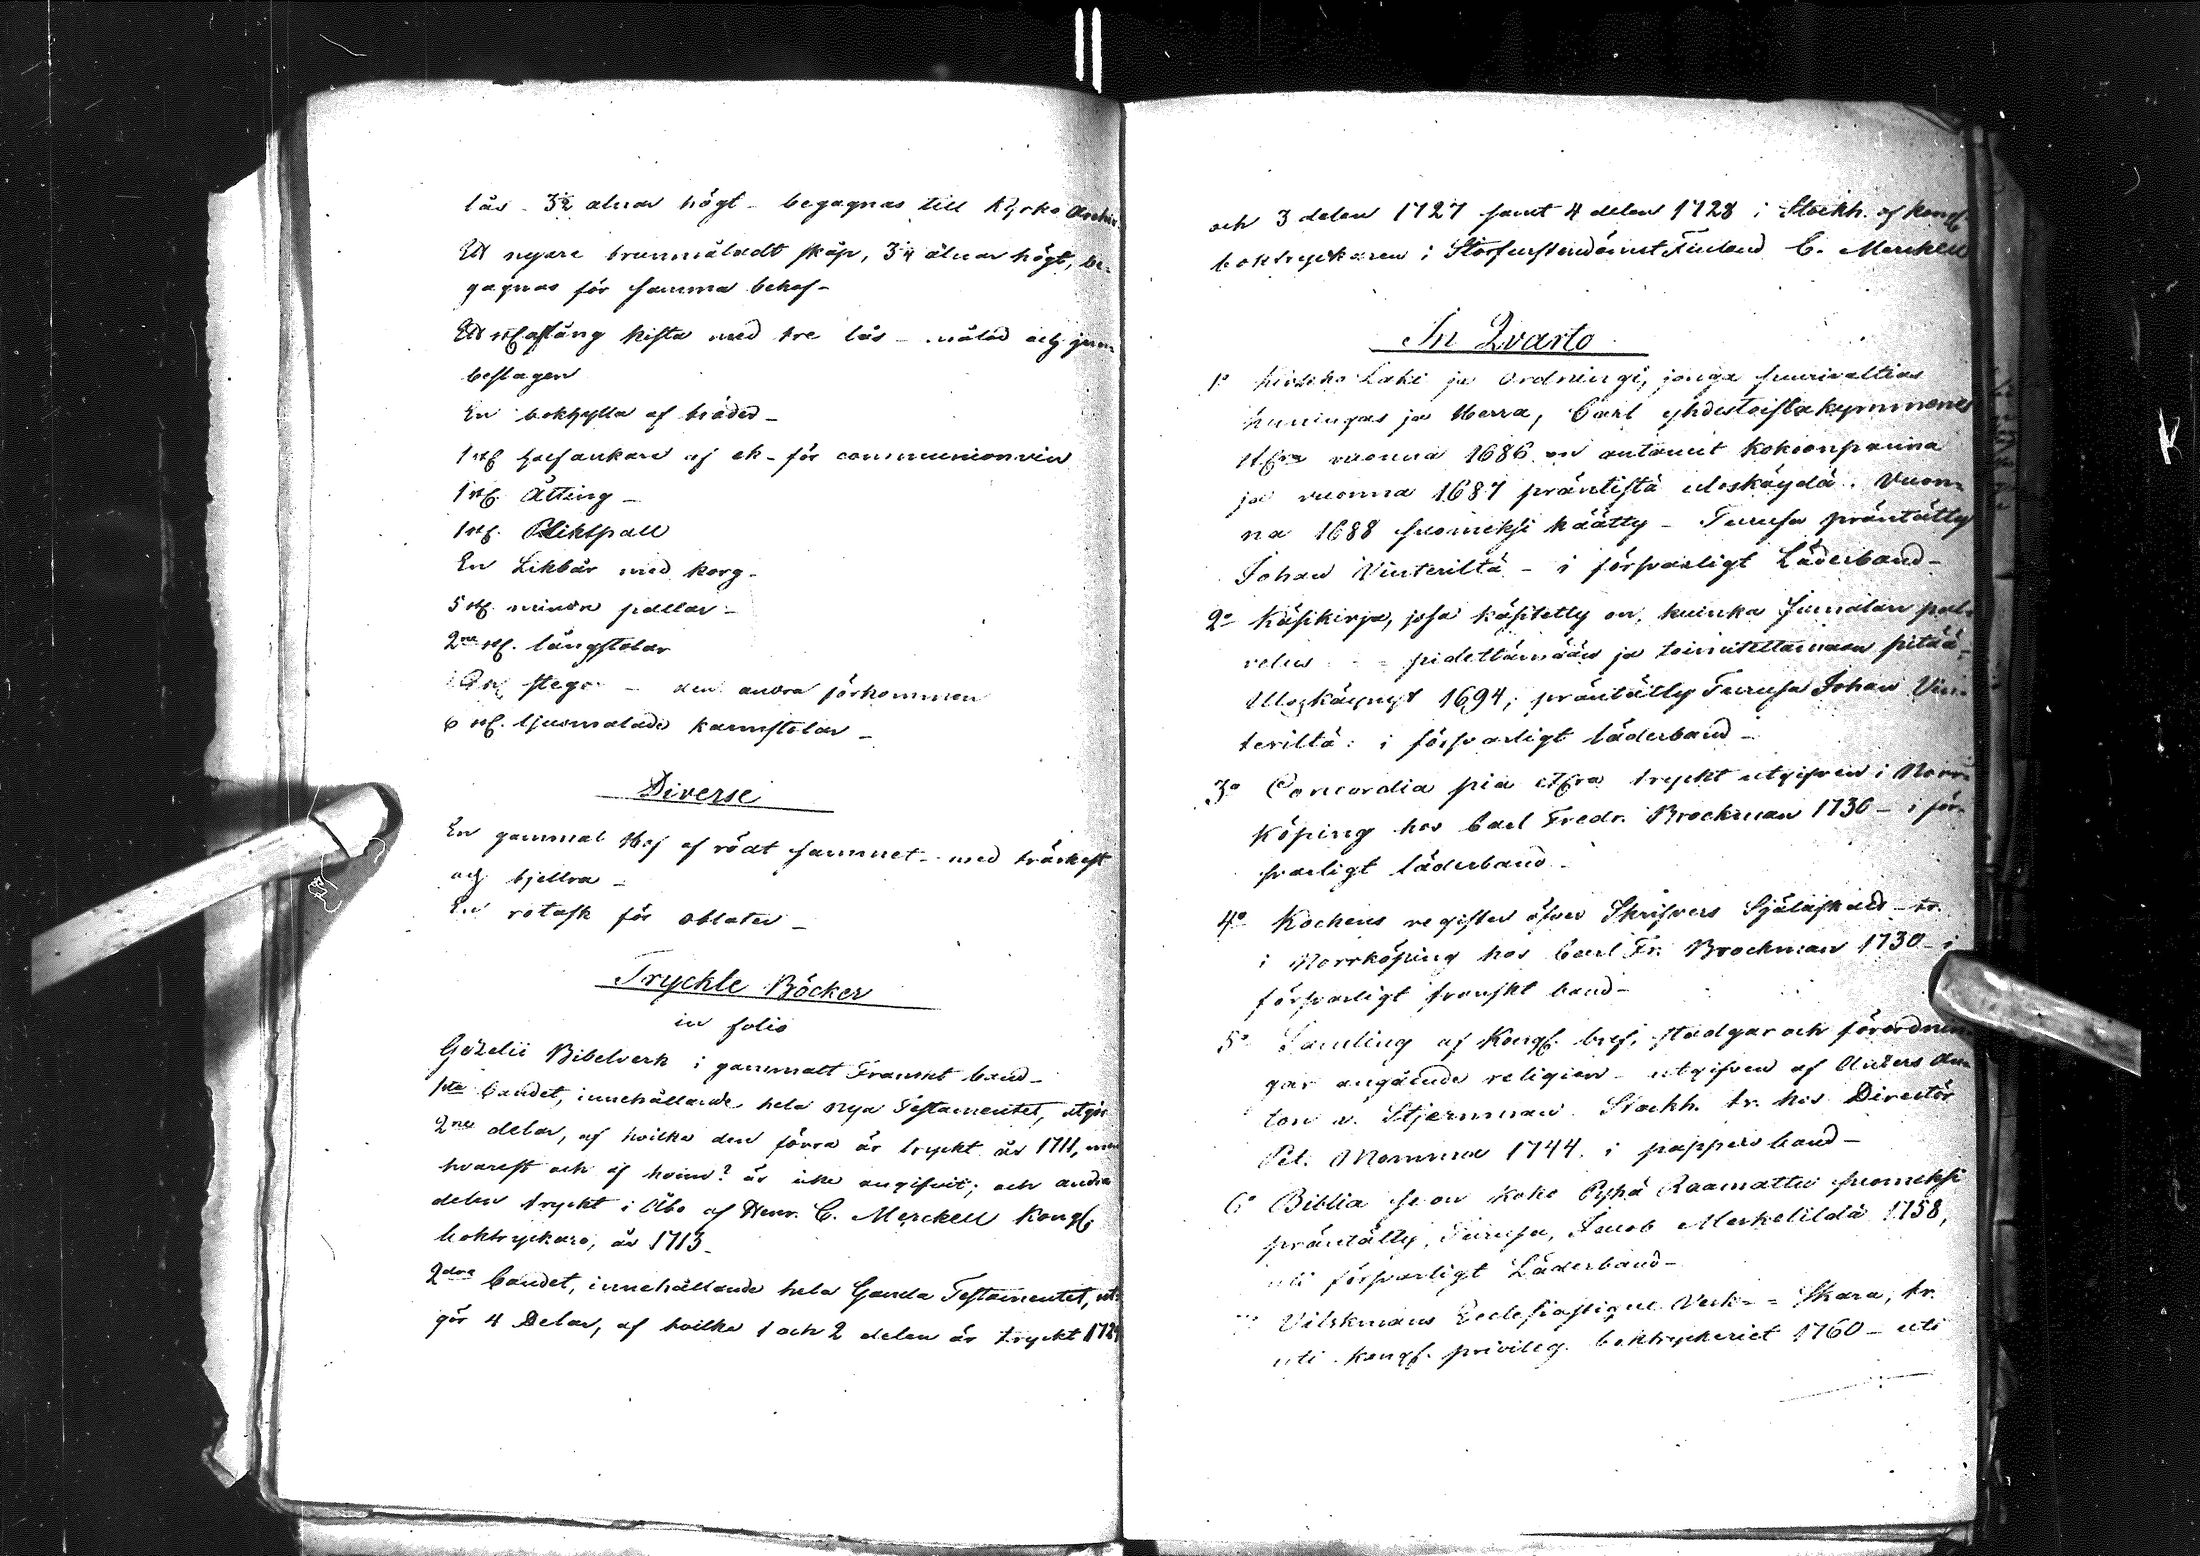 lås - 3½ alnar högt - begagnas till Kyrko Archiv
Ett nyare brunmåladt skåp, 3¼ alnar högt, be-
gagnas för samma behof -
aflång kista med tre lås - målad och jern
beslagen
En bokhylla af bräder -
1 st. half ankare af ek - för communionvin
1 st. Åtting -
1 st. Pliktpall
En Likbår med korg -
5 st. mindre pallar -
2ne st. långstolar
stegar - den andra förkommen
6 st. ljusmålade karmstolar -
Diverse
En gammal Håf af rödt sammet - med träskaft
och bjellra -
En rotask för oblater -
Tryckte Böcker
in folio
Gezelii Bibelverk i gammalt Franskt band -
1sta bandet, innehållande hela nya Testamentet, utgör
2ne delar, af hvilka den förra är tryckt år 1711, men
hvarest och af hvem? är icke angifvit; och andra
delen tryckt i Åbo af Henr. C. Merckell Kongl.
boktryckare, år 1713 -
2dra bandet, innehållande hela Gamla Testamentet, ut-
gör 4 Delar, af hvilka 1 och 2 delen är tryckt 1724
och 3 delen 1727 samt 4 delen 1728 i Stockh. af kongl.
boktryckaren i Storfurstendömet Finland C. Merckell
In Qvarto
1o Kircko Laki ja Ordningi, jonga suurivaltias
kuningas ja Herra, Carl yhdestoistakymmenes
vuonna 1686 on antanut kokoonpanna
ja vuonna 1687 präntistä uloskäydä. Vuon-
na 1688 suomeksi käätty - Turusa präntätty
Johan Vinterildä - i försvarligt Läderband -
2o Käsikirja, josa käsitetty on, kuinka Jumalan pal-
velus - = pidettämän ja toimitettaman pitää,
Uloskäynyt 1694, präntätty Turusa Johan Vin-
terildä: i försvarligt läderband -
3o Concordia pia tryckt utgifven i Norr-
köping hos Carl Fredr. Brockman 1730 - i för-
svarligt läderband -
4o Kochens register öfver Skrifvers Själaskatt - tr.
i Norrköping hos Carl Fr. Brockman 1730 - i
försvarligt franskt band -
5o Samling af Kongl. bref, stadgar och förordnin-
gar angående religion - utgifven af Anders An-
ton v. Stjernman. Stockh. tr. hos Directör
Pet. Momma 1744. i pappers band -
6o Biblia se on Koko Pyhä Raamattu suomeksi
präntätty, Turusa, Jacob Merkelildä 1758,
uti försvarligt Läderband -
Vilskmans Ecclesiastique Verk - = Skara, tr.
uti kongl. privileg. boktryckeriet 1760 - uti